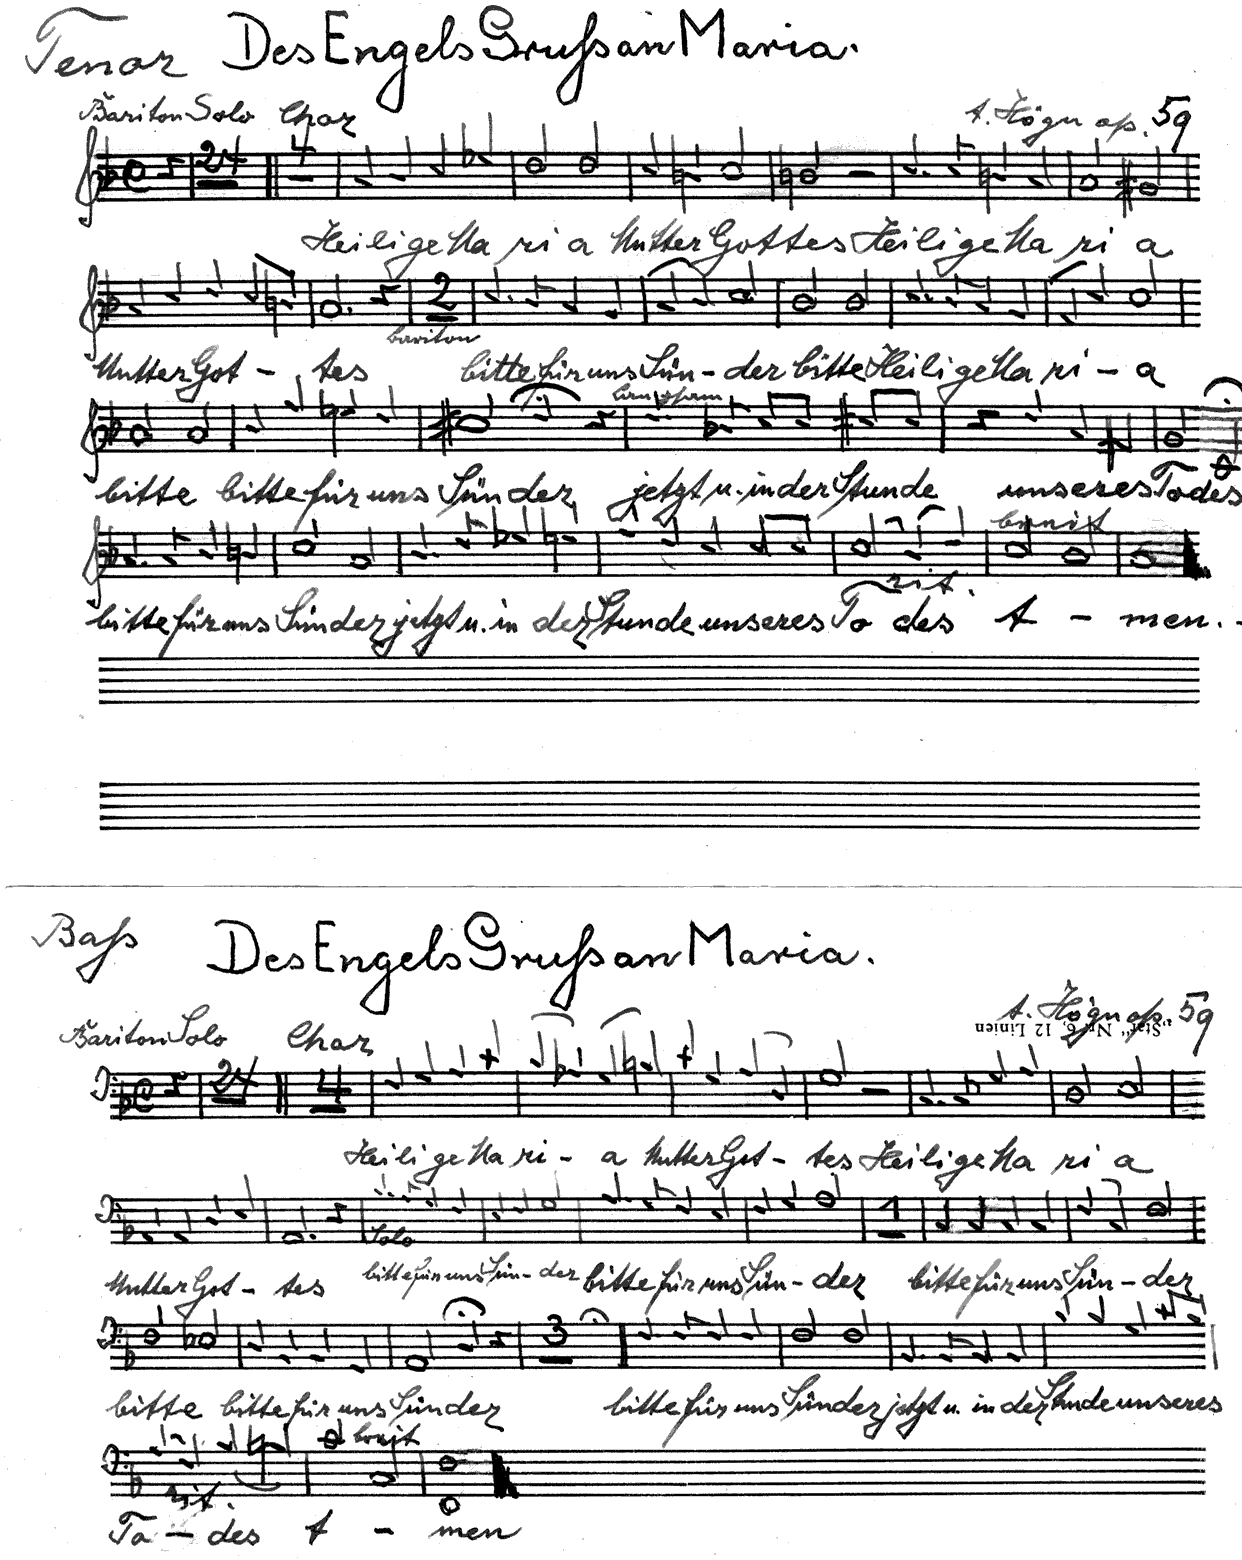 Tenor Des Engels Gruß an Maria.
Bariton Solo Chor A. Högn op. 59
24 4
Heilige Ma ri a Mutter Gottes Heilige Ma ri a
2
bariton
Mutter Got - tes bitte für uns Sün - der bitte Heilige Ma ri - a
bitte bitte für uns Sünder jetzt u. in der Stunde unseres Todes
breit
rit.
bitte für uns Sünder jetzt u. in der Stunde unseres To des A - men..
Baß Des Engels Gruß an Maria.
Bariton Solo Chor A. Högn op. 59
"Star" Nr. 6, 12 Linien
24 4
Heilige Ma ri - a Mutter Got - tes Heilige Ma ri a
Solo 1
Mutter Got - tes bitte für uns Sün - der bitte für uns Sün - der bitte für uns Sün - der
3
bitte bitte für uns Sünder bitte für uns Sünder jetzt u. in der Stunde unseres
rit. breit
To - des A - men